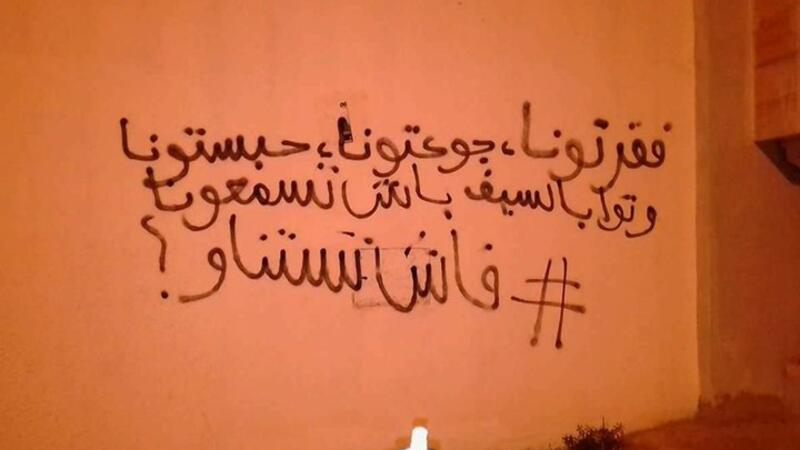 فقرتونا، جوعتونا، حبستونا
و توا بالسيف باش تسمعونا
#فاش_نستناو؟